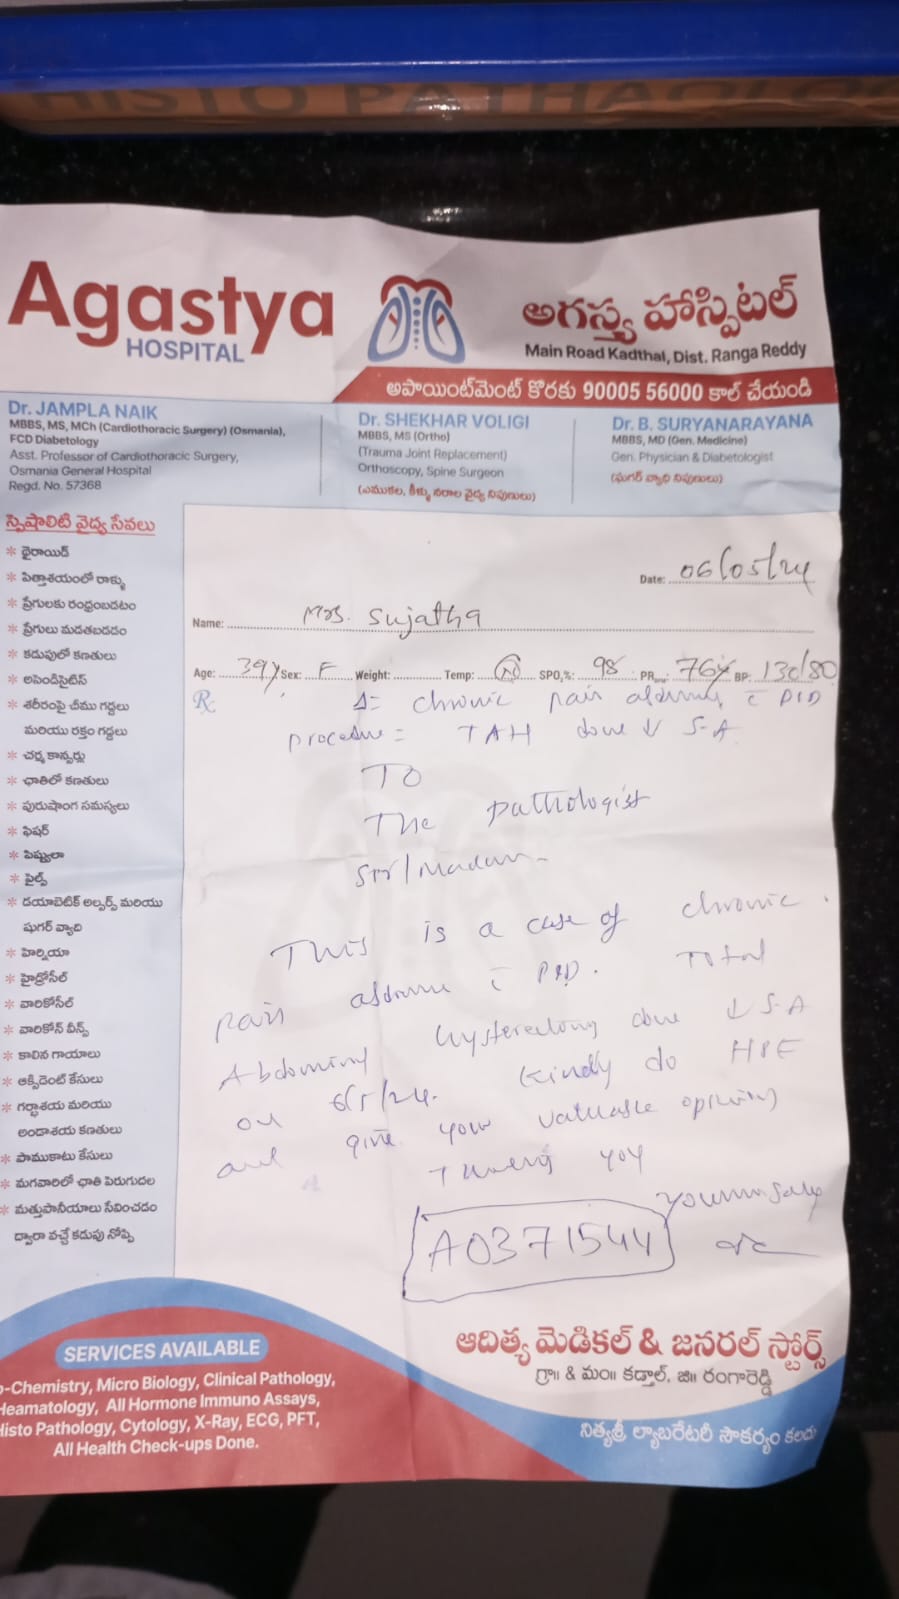 HISTO PATHOLO
Agastya
HOSPITAL
అగస్త్య హాస్పిటల్
Main Road Kadthal, Dist. Ranga Reddy
అపాయింట్‌మెంట్ కొరకు 90005 56000 కాల్ చేయండి
Dr. JAMPLA NAIK
MBBS, MS, MCh (Cardiothoracic Surgery) (Osmania),
FCD Diabetology
Asst. Professor of Cardiothoracic Surgery,
Osmania General Hospital
Regd. No. 57368
Dr. SHEKHAR VOLIGI
MBBS, MS (Ortho)
(Trauma Joint Replacement)
Orthoscopy, Spine Surgeon
(ఎముకల, కీళ్ళు నరాల వైద్య నిపుణులు)
Dr. B. SURYANARAYANA
MBBS, MD (Gen. Medicine)
Gen. Physician & Diabetologist
(షుగర్ వ్యాధి నిపుణులు)
స్పెషాలిటి వైద్య సేవలు
* థైరాయిడ్
* పిత్తాశయంలో రాళ్ళు
* ప్రేగులకు రంద్రంబడటం
* ప్రేగులు మడతబడడం
* కడుపులో కణతులు
* అపెండిసైటిస్
* శరీరంపై చీము గడ్డలు
మరియు రక్తం గడ్డలు
* చర్మ కాన్సర్లు
* ఛాతిలో కణతులు
* పురుషాంగ సమస్యలు
* ఫిషర్
* పిష్టులా
* పైల్స్
* డయాబెటిక్ అల్సర్స్ మరియు
షుగర్ వ్యాధి
* హెర్నియా
* హైడ్రోసీల్
* వారికోసీల్
* వారికోస్ వీన్స్
* కాలిన గాయాలు
* ఆక్సిడెంట్ కేసులు
* గర్భాశయ మరియు
అండాశయ కణతులు
* పాముకాటు కేసులు
* మగవారిలో ఛాతి పెరుగుదల
* మత్తుపానీయాలు సేవించడం
ద్వారా వచ్చే కడుపు నోప్పి
Date: 06/05/24
Name: Mrs. Sujatha
Age: 39y Sex: F Weight: Temp: N SPO₂%: 98 PR 76 BP: 130/80
Rx Δ= chronic pain c̄ PID
procedure = TAH done ↓ S-A
TO
The pathologist
Sir/Madam-
This is a case of chronic
pain c̄ PID. Total
Abdominy hysterectomy done ↓ S-A
on 6/5/24. Kindly do HPE
and give your valuable
A0371544
SERVICES AVAILABLE
o-Chemistry, Micro Biology, Clinical Pathology,
Heamatology, All Hormone Immuno Assays,
Histo Pathology, Cytology, X-Ray, ECG, PFT,
All Health Check-ups Done.
ఆదిత్య మెడికల్ & జనరల్ స్టోర్స్
గ్రా॥ & మం॥ కడ్తాల్, జి॥ రంగారెడ్డి
నిత్యశ్రీ ల్యాబరేటరీ సౌకర్యం కలదు